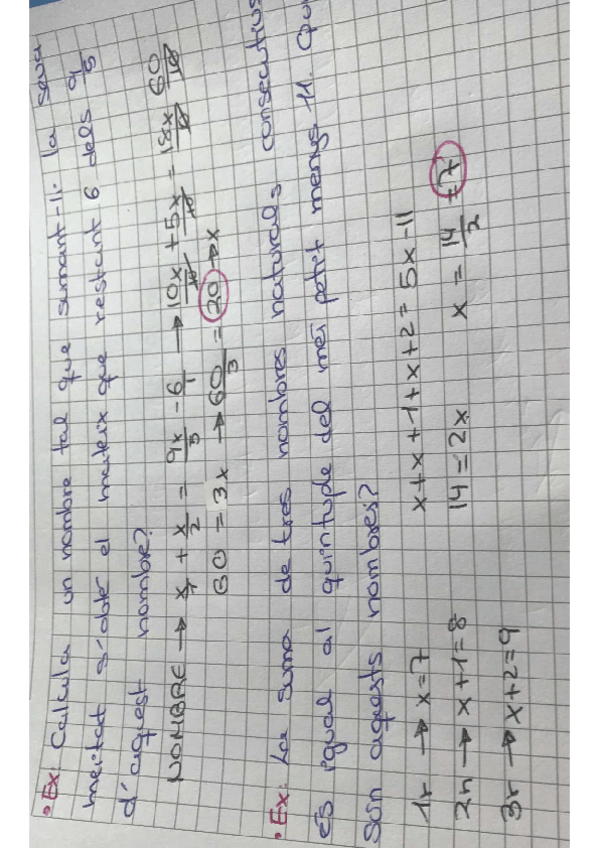 • Ex: Calcula un nombre tal que sumant-li la seva
meitat s'obté el mateix que restant 6 dels 9/5
d'aquest nombre?
NOMBRE → x/1 + x/2 = 9x/5 - 6/1 → 10x/10 + 5x/10 = 18x/10 60/10
60 = 3x → 60/3 = 20 → x
• Ex: La suma de tres nombres naturals consecutius
és igual al quíntuple del més petit menys 11. Qu
són aquests nombres?
1r → x=7 x+x+1+x+2 = 5x-11
2n → x+1=8 14 = 2x x = 14/2 = 7
3r → x+2=9